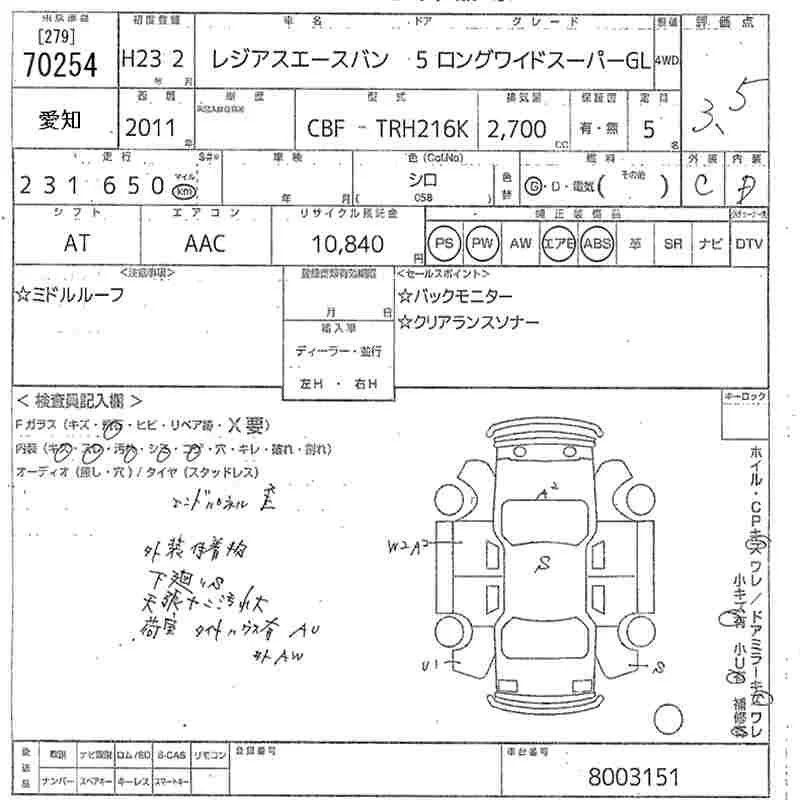 [279]
70254
愛知
初度登録
H23 2
年 月
車名 ドア グレード
レジアスエースバン 5 ロングワイドスーパーGL
4WD
評価点
3.5
西暦
2011 年
型式
CBF - TRH216K
排気量
2,700 CC
保証書
有・無
定員
5 名
走行
231650
マイル
km
車検
年 月
色(Col.No)
シロ
058
色替
燃料
G・D・電気( その他 )
外装
C
内装
D
シフト
AT
エアコン
AAC
リサイクル預託金
10,840 円
純正装備品
PS PW AW エアB ABS 革 SR ナビ DTV
<注意事項>
☆ミドルルーフ
月 日
輸入車
ディーラー・並行
左H ・ 右H
<セールスポイント>
☆バックモニター
☆クリアランスソナー
<検査員記入欄>
Fガラス(キズ・飛石・ヒビ・リペア跡・X要)
内装(キズ・スレ・汚れ・シミ・コゲ・穴・キレ・破れ・割れ)
オーディオ(無し・穴)/タイヤ(スタッドレス)
外装付着物
下廻りS
キーロック
A2
W2A2
S
U1
S
ホイル・CPキズ ワレ/ドアミラーキズ ワレ
小キズ有 小U有 補修跡
後送品
取説 ナビ取説 ロム/SD B-CAS リモコン
ナンバー スペアキー キーレス スマートキー
登録番号
車台番号
8003151